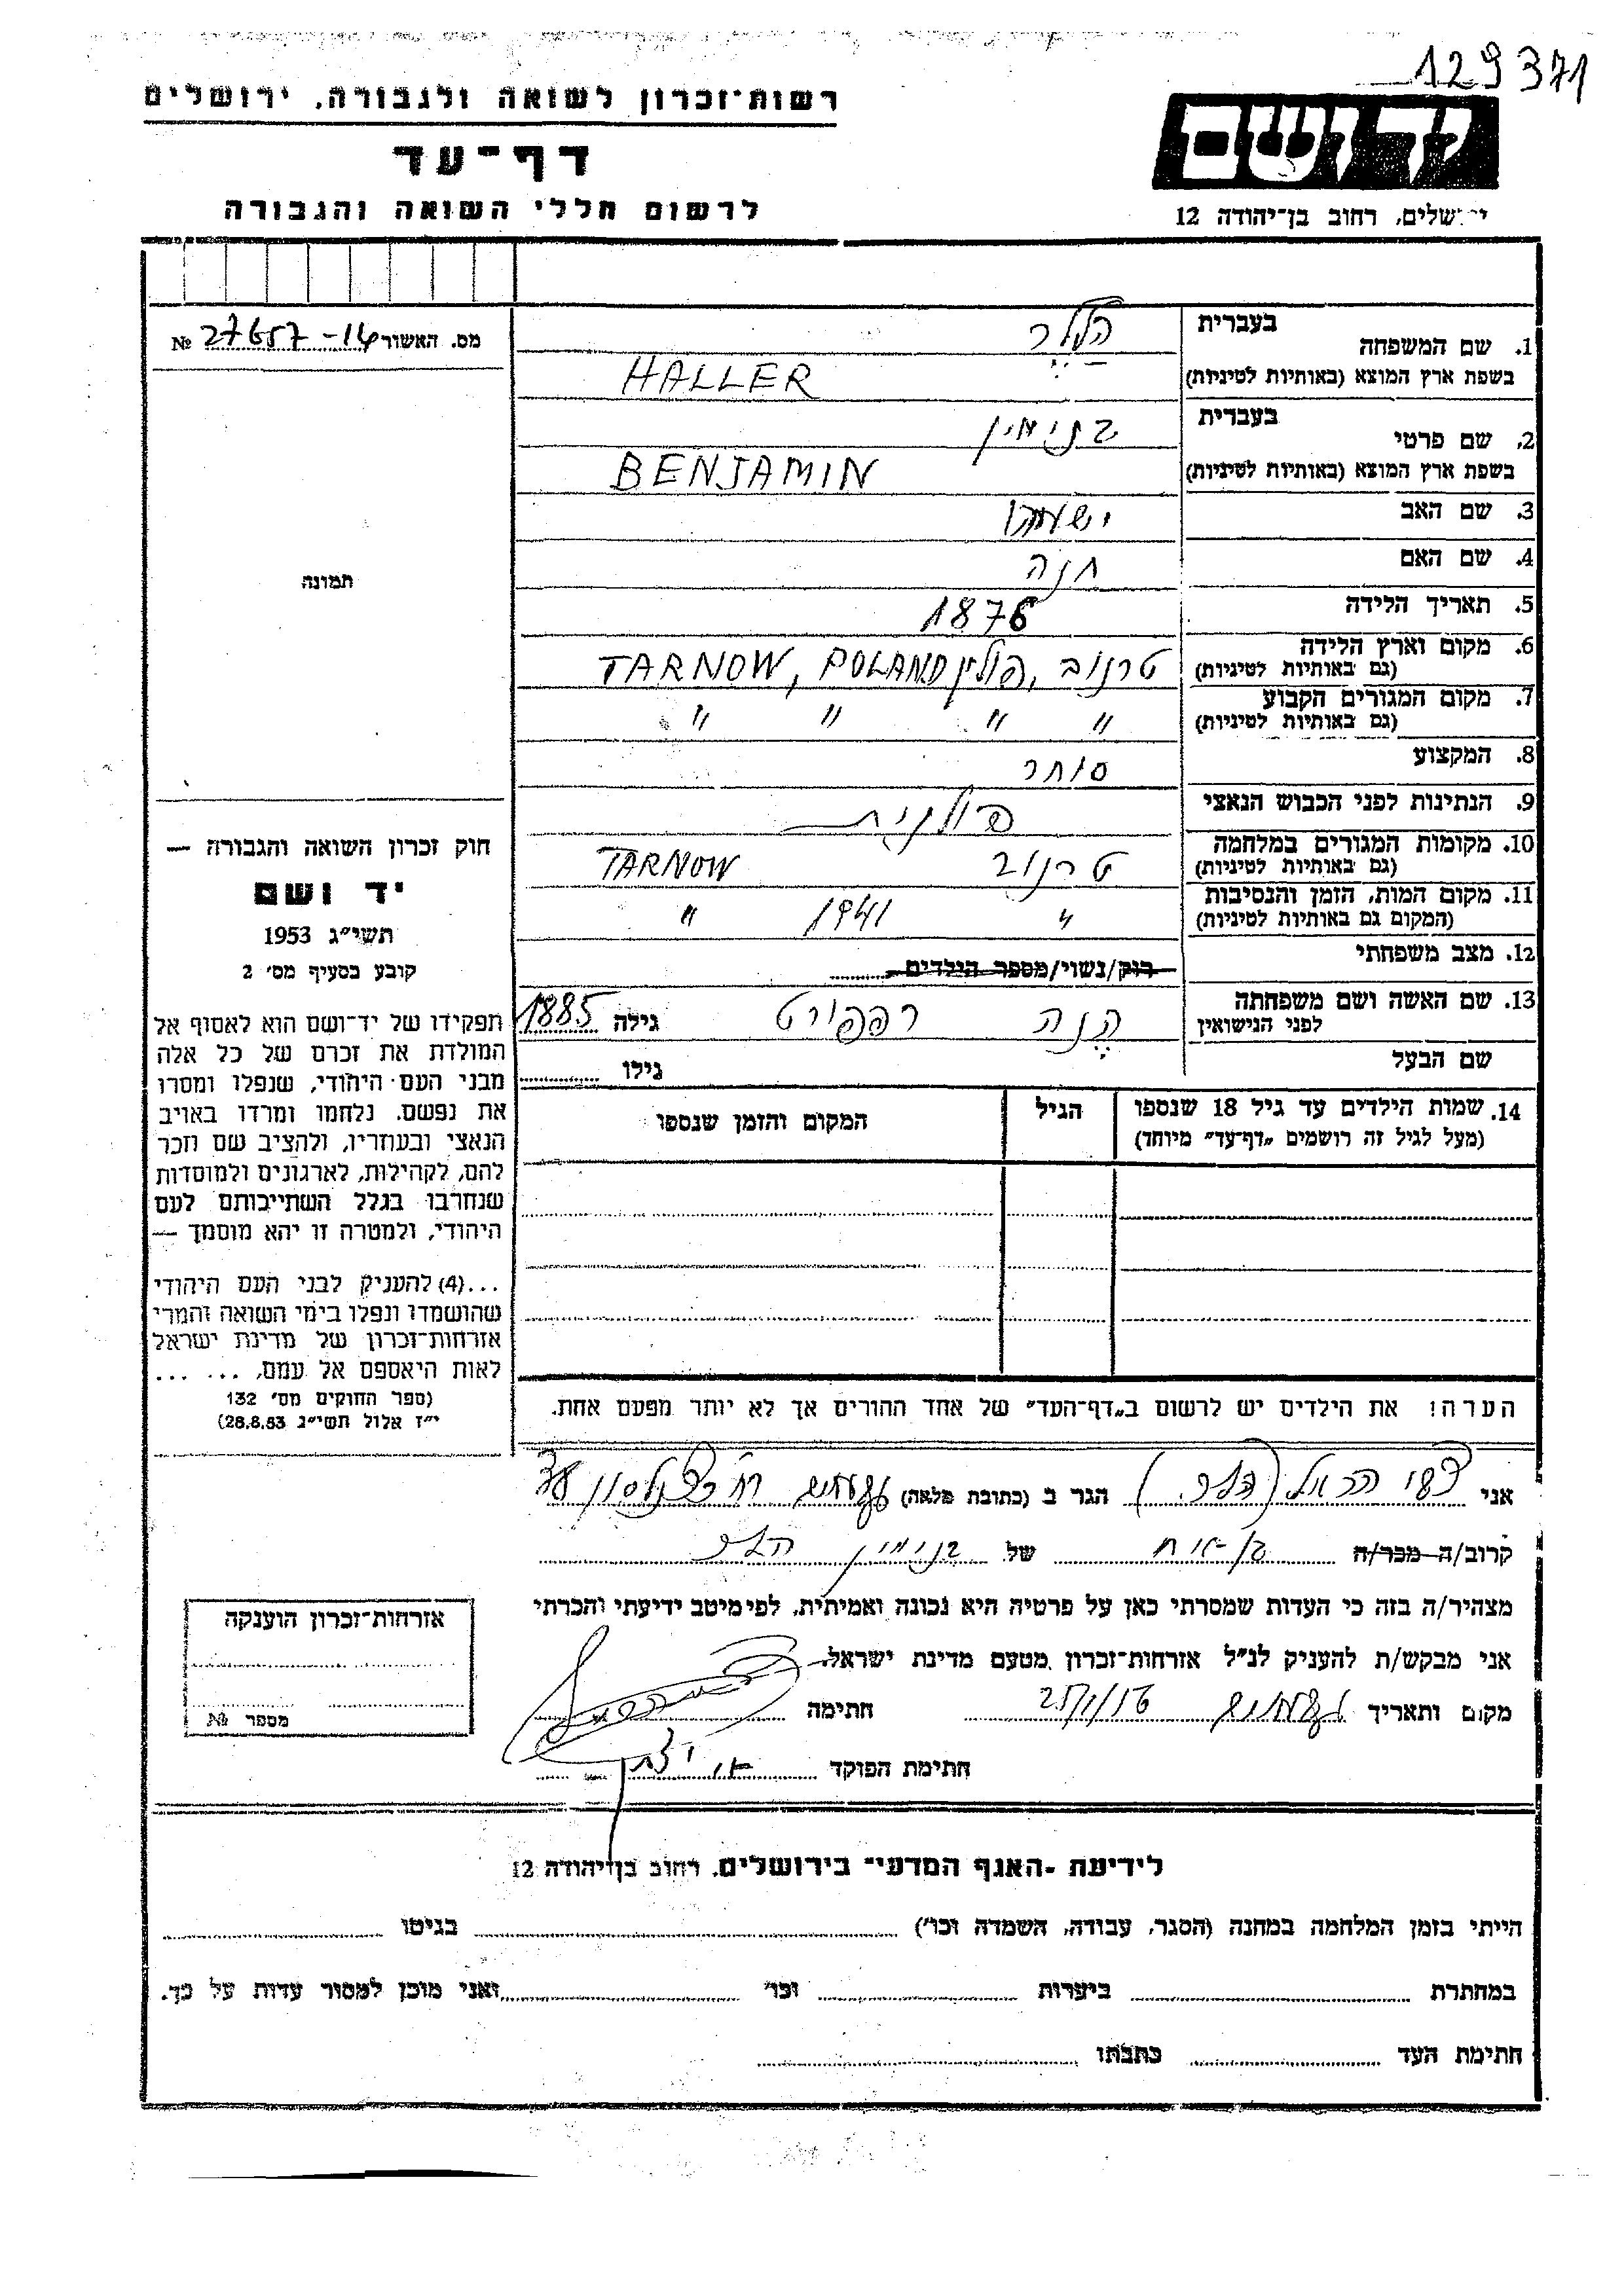 129371
רשות־זכרון לשואה ולגבורה, ירושלים
דף־עד
לרשום חללי השואה והגבורה
יד ושם
ירושלים, רחוב בן־יהודה 12
מס. האשור № 27657-14
1. שם המשפחה בעברית הלר
בשפת ארץ המוצא (באותיות לטיניות) HALLER
2. שם פרטי בעברית בנימין
בשפת ארץ המוצא (באותיות לטיניות) BENJAMIN
3. שם האב
4. שם האם חנה
5. תאריך הלידה 1876
6. מקום וארץ הלידה (גם באותיות לטיניות) טרנוב, פולין TARNOW, POLAND
7. מקום המגורים הקבוע (גם באותיות לטיניות) " " " "
8. המקצוע סוחר
9. הנתינות לפני הכבוש הנאצי פולנית
10. מקומות המגורים במלחמה (גם באותיות לטיניות) טרנוב TARNOW
11. מקום המות, הזמן והנסיבות (המקום גם באותיות לטיניות) " 1941 "
12. מצב משפחתי רוק/נשוי/מספר הילדים
13. שם האשה ושם משפחתה לפני הנישואין הנה רפפורט גילה 1885
שם הבעל גילו
14. שמות הילדים עד גיל 18 שנספו (מעל לגיל זה רושמים „דף־עד” מיוחד) הגיל המקום והזמן שנספו
הערה! את הילדים יש לרשום ב„דף־העד” של אחד ההורים אך לא יותר מפעם אחת.
תמונה
חוק זכרון השואה והגבורה —
יד ושם
תשי״ג 1953
קובע בסעיף מס׳ 2
תפקידו של יד־ושם הוא לאסוף אל
המולדת את זכרם של כל אלה
מבני העם היהודי, שנפלו ומסרו
את נפשם, נלחמו ומרדו באויב
הנאצי ובעוזריו, ולהציב שם וזכר
להם, לקהילות, לארגונים ולמוסדות
שנחרבו בגלל השתייכותם לעם
היהודי, ולמטרה זו יהא מוסמך —
...(4) להעניק לבני העם היהודי
שהושמדו ונפלו בימי השואה והמרי
אזרחות־זכרון של מדינת ישראל
לאות היאספם אל עמם, ... ...
(ספר החוקים מס׳ 132
י״ז אלול תשי״ג 28.8.53)
אני הראל (הלר) הגר ב (כתובת מלאה)
קרוב/ה מכר/ה בן-אח של בנימין הלר
מצהיר/ה בזה כי העדות שמסרתי כאן על פרטיה היא נכונה ואמיתית, לפי מיטב ידיעתי והכרתי
אני מבקש/ת להעניק לנ״ל אזרחות־זכרון מטעם מדינת ישראל.
מקום ותאריך חתימה
חתימת הפוקד
אזרחות־זכרון הוענקה
מספר №
לידיעת ־האגף המדעי־ בירושלים, רחוב בן־יהודה 12
הייתי בזמן המלחמה במחנה (הסגר, עבודה, השמדה וכו׳) בגיטו
במחתרת ביערות וכו׳ ואני מוכן למסור עדות על כך.
חתימת העד כתבתו